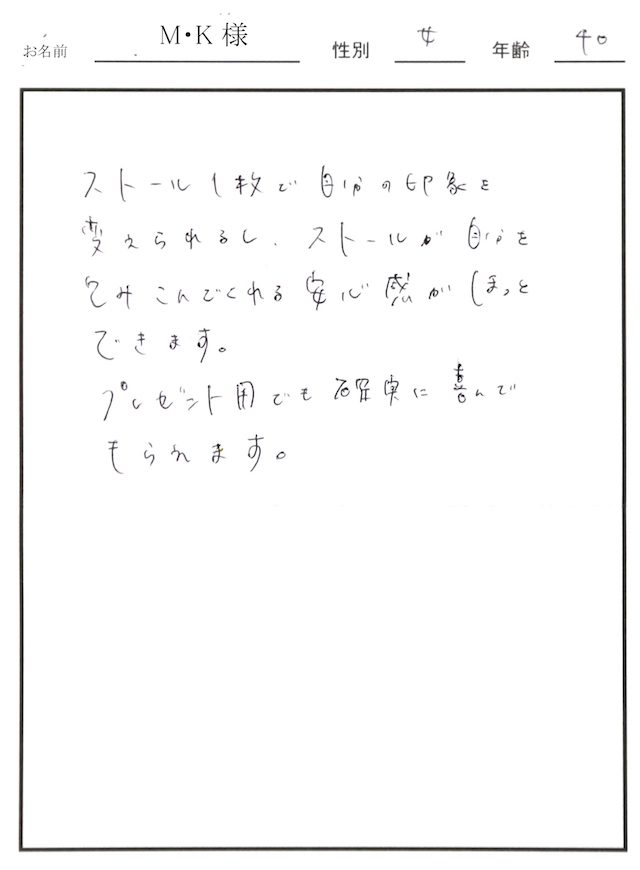 お名前 M・K 様 性別 女 年齢 40
ストール1枚で自分の印象を
変えられるし、ストールが自分を
包みこんでくれる安心感がほっと
できます。
プレゼント用でも確実に喜んで
もられます。